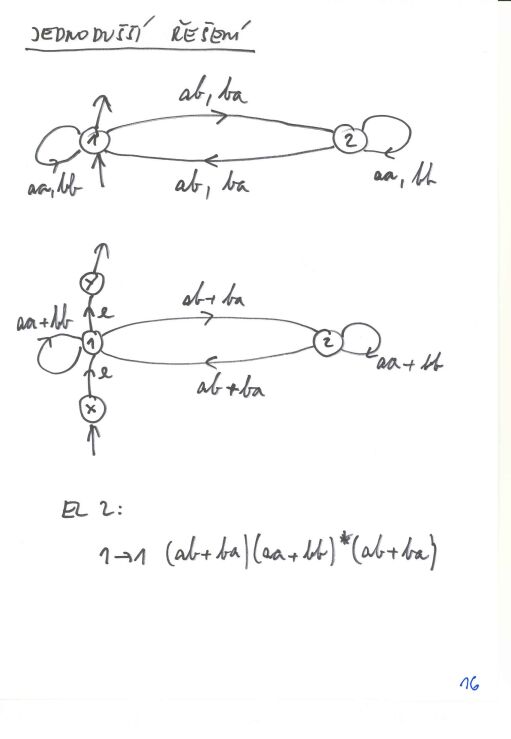 JEDNODUŠŠÍ ŘEŠENÍ
ab, ba
1
2
aa, bb
aa, bb
ab, ba
Y
e
ab + ba
aa + bb
1
2
aa + bb
e
ab + ba
X
EL 2:
1→1 (ab + ba)(aa + bb)*(ab + ba)
16